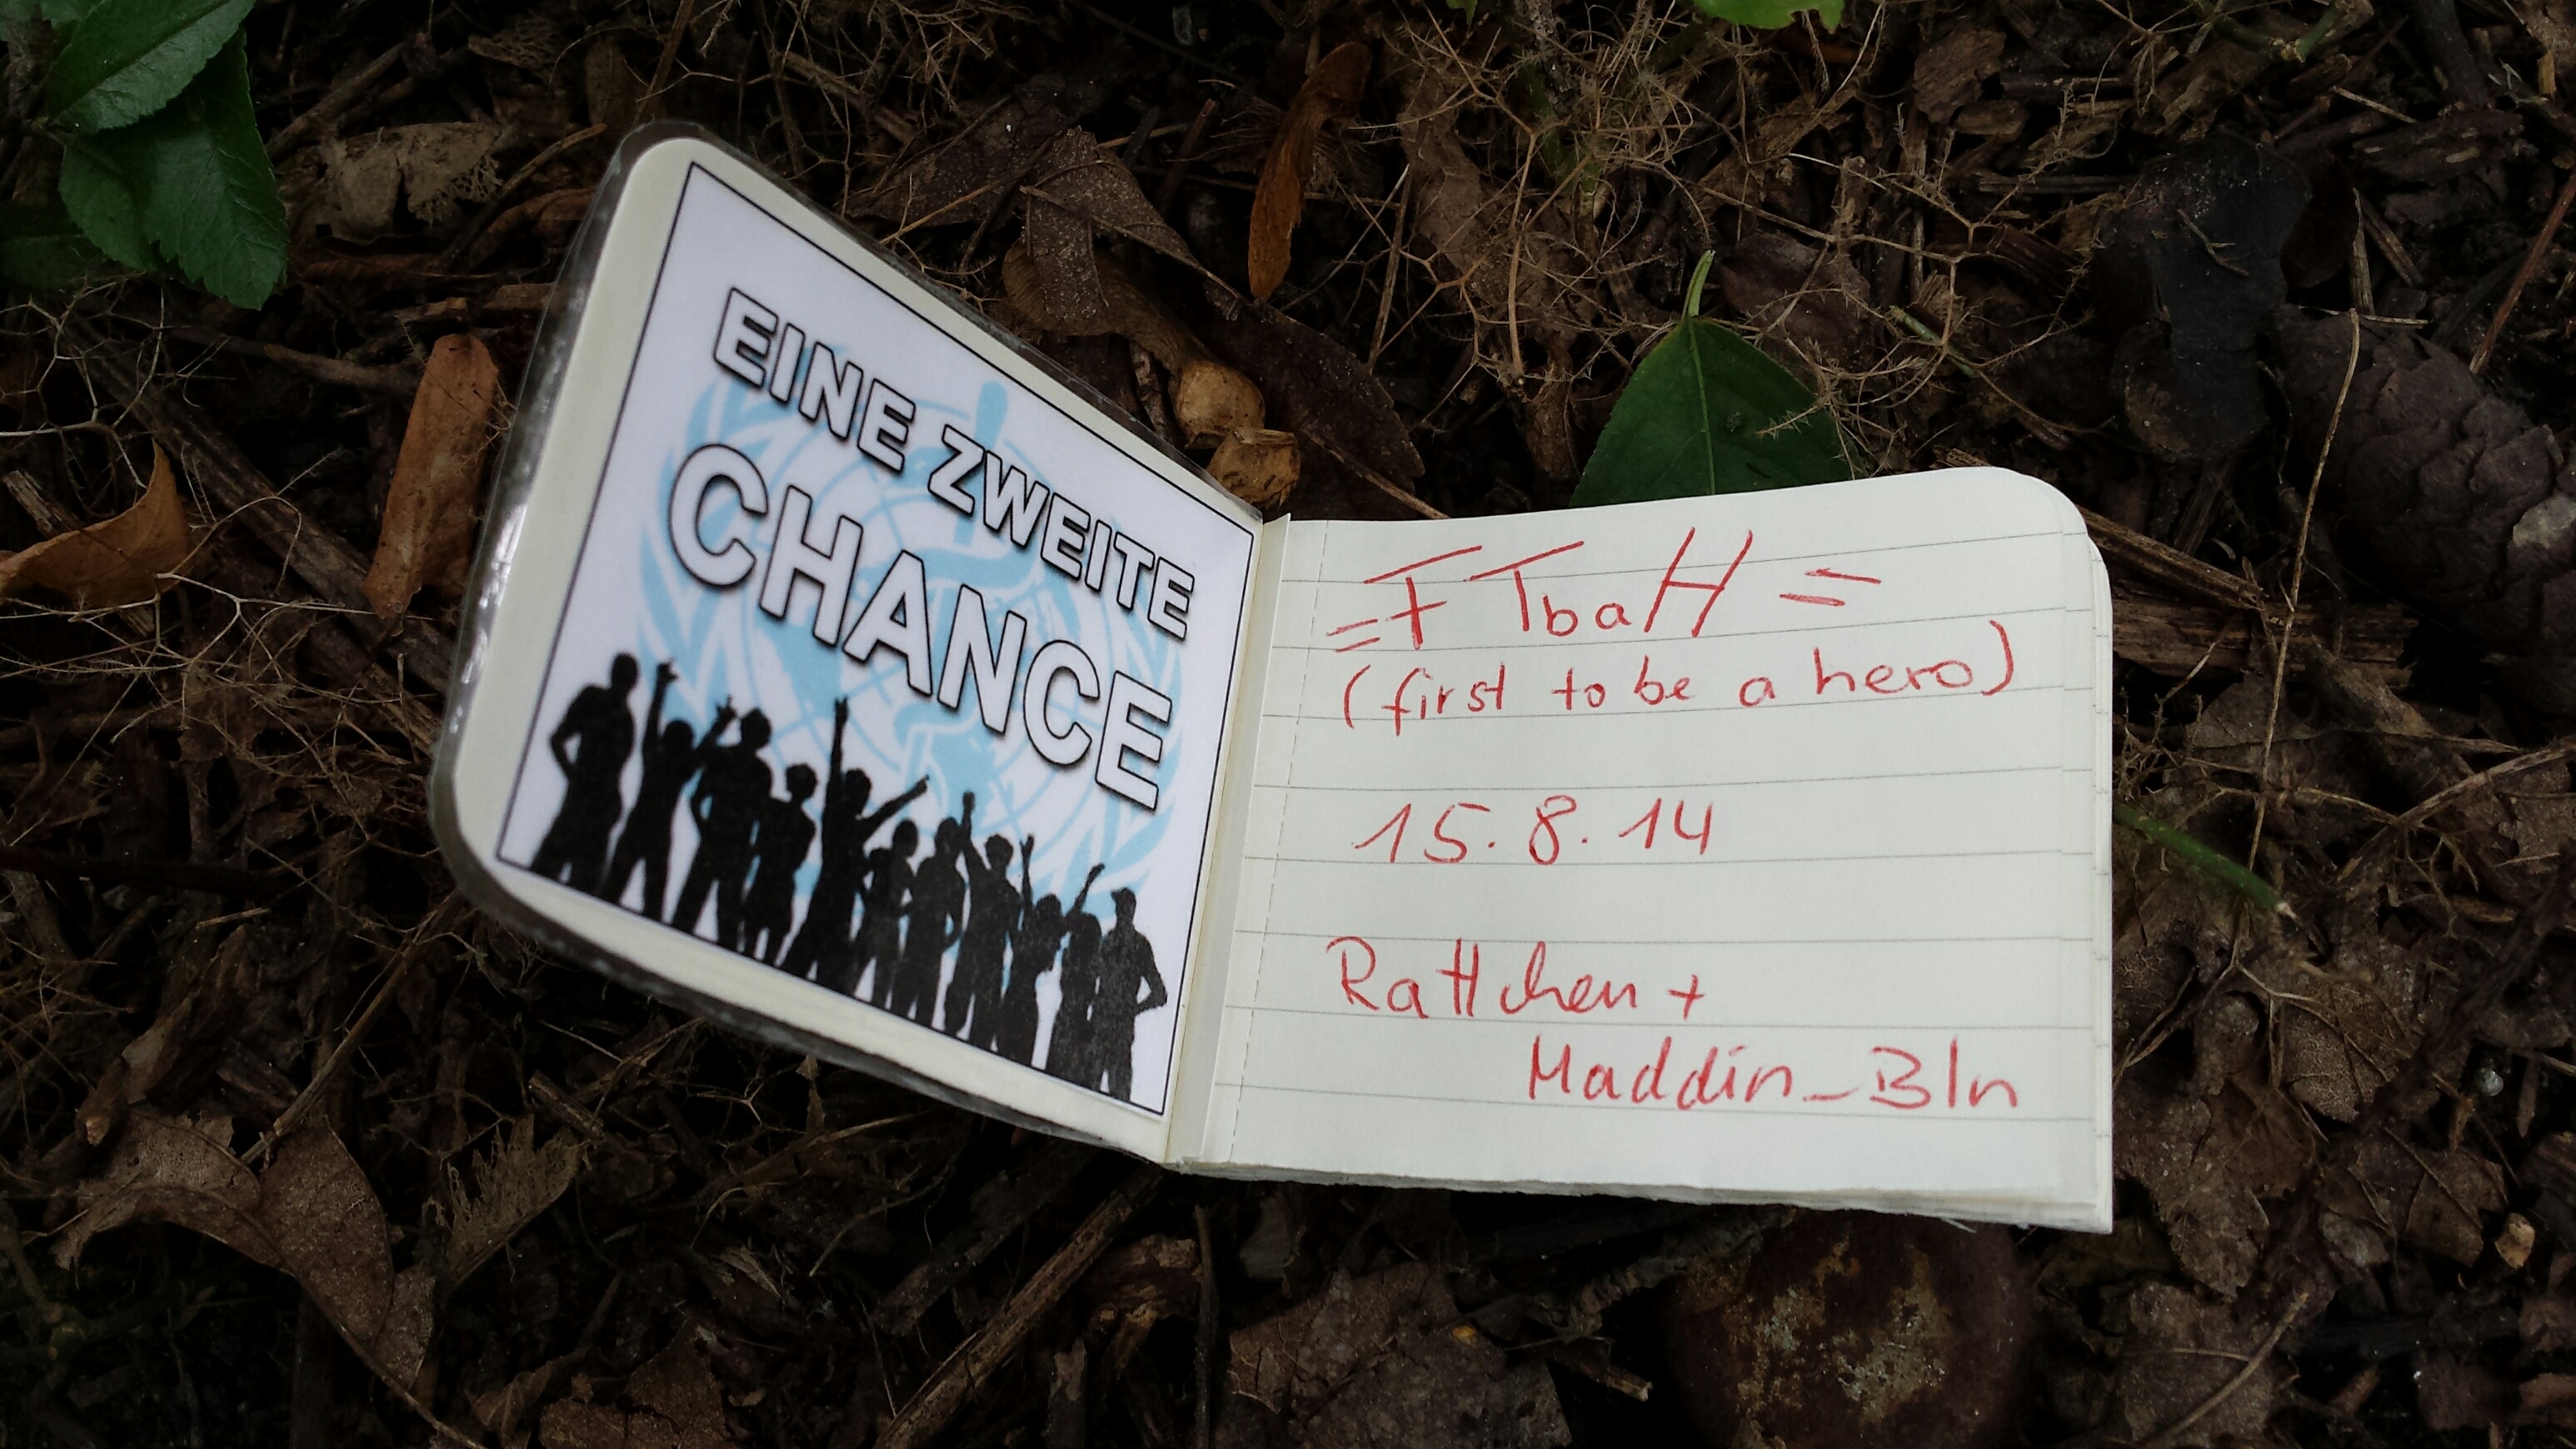 EINE ZWEITE
CHANCE
=FTbaH=
(first to be a hero)
15.8.14
Rattchen +
Maddin_Bln